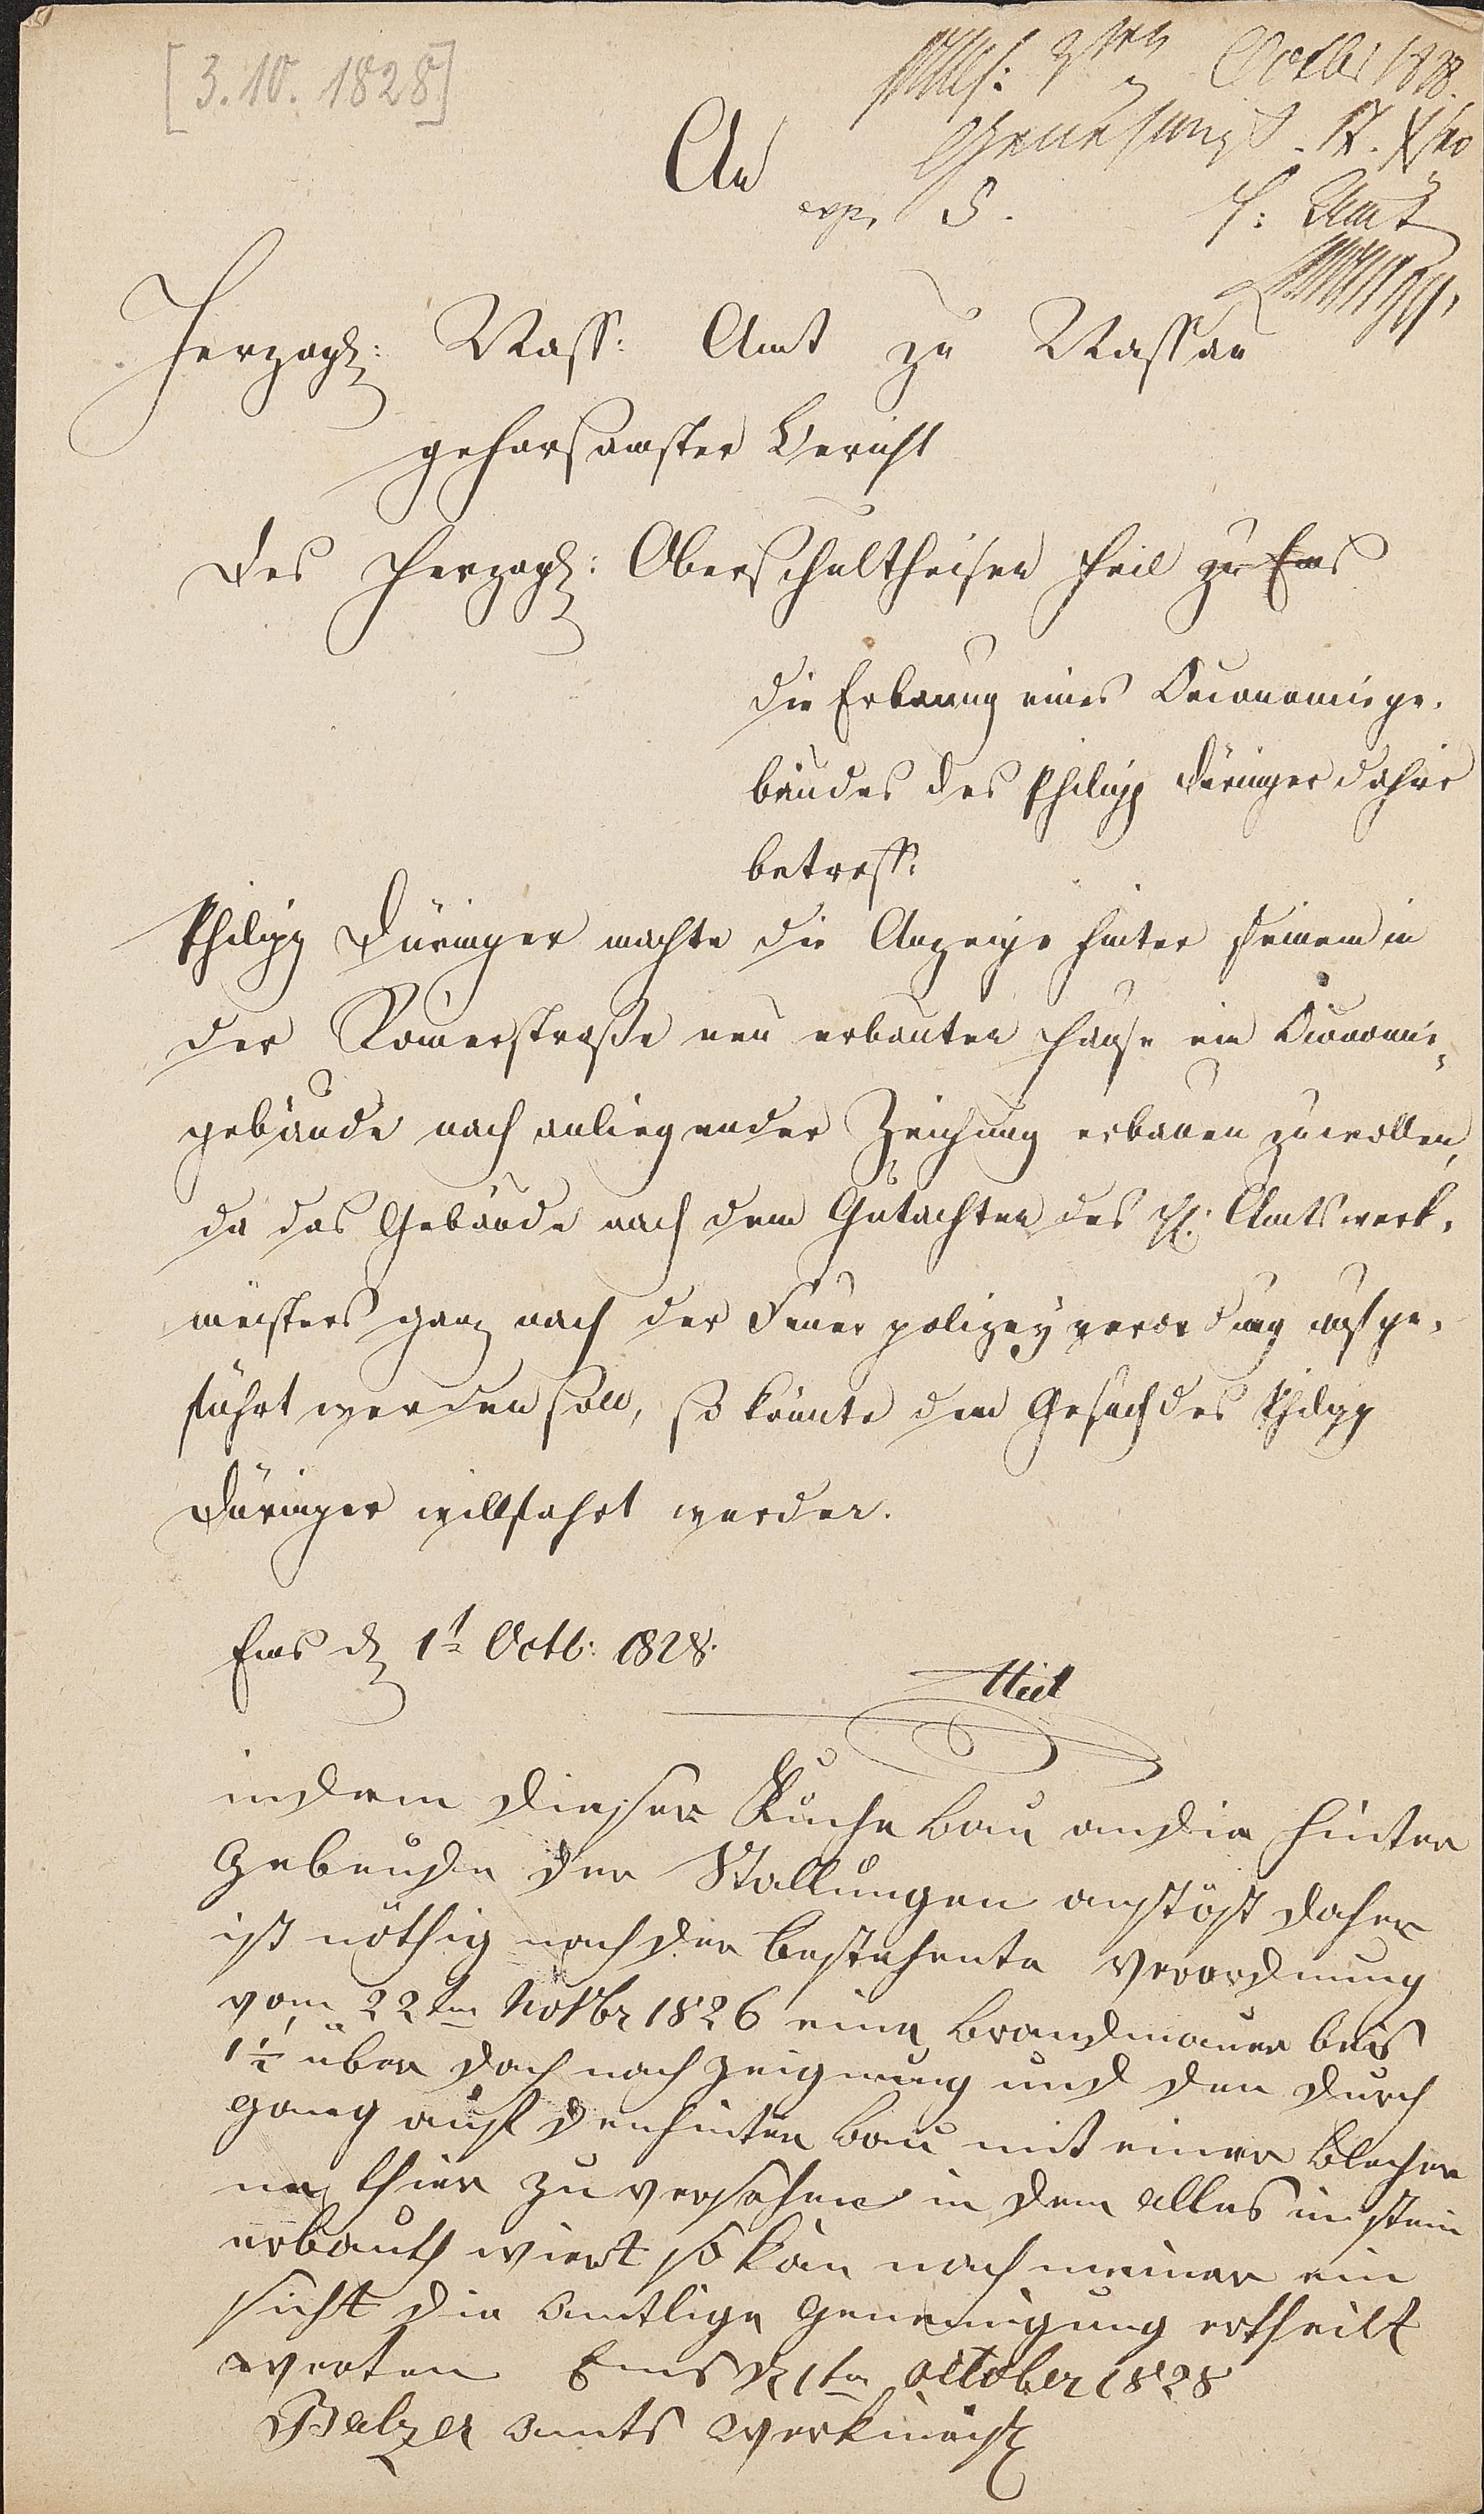 [3.10.1828]
Octbr 1828.
Genehmigt.
An
exp. 3.
H: Amt
Herzogl: Nass: Amt zu Nassau
gehorsamster Bericht
des Herzogl: Oberschultheisen Heil zu Ems
die Erbauung eines Oeconomiege-
bäudes des Philipp Düringer dahier
betreff:
Philipp Düringer machte die Anzeige hinter seinem in
der Römerstraße neu erbauten Hause ein Oeconomie-
gebäude nach anliegender Zeichnung erbauen zu wollen,
da das Gebäude nach dem Gutachten des H: Amtswerk-
meisters ganz nach der Feuer polizeyverordung aufge-
führt werden soll, so könnte dem Gesuch des Philipp
Düringer willfahrt werden.
Ems d 1t Octb: 1828.
Heil
indem dieser Küche bau an die hinter
Gebeude der Stallungen anstöst daher
ist nöthig nach der bestehente Verordnung
vom 22ten Novbr 1826 eine Brandmauer beis
1½ über dach nach zeignung und den durch
gang auf den hinter bau mit einer bleche
ne thier zu versehen in dem alles in stein
erbauth wiert so kan nach meiner ein
sicht die amtlige genemigung ertheilt
werten Ems d 1ten October 1828
Balzer amts werkmeist